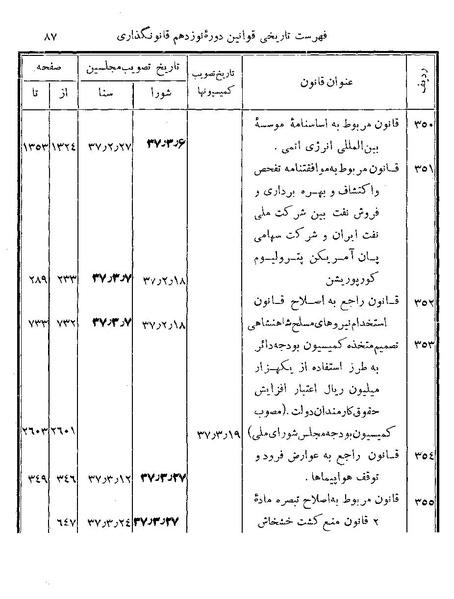 فهرست تاریخی قوانین دورهٔ نوزدهم قانونگذاری ۸۷
ردیف عنوان قانون تاریخ تصویب کمیسیونها تاریخ تصویب مجلسین صفحه
شورا سنا از تا
۳۵۰ قانون مربوط به اساسنامهٔ موسسهٔ
بین‌المللی انرژی اتمی . ۳۷٫۳٫۶ ۳۷٫۲٫۲۷ ۱۳۲۴ ۱۳۵۳
۳۵۱ قانون مربوط به موافقتنامه تفحص
واکتشاف و بهره برداری و
فروش نفت بین شرکت ملی
نفت ایران و شرکت سهامی
پان آمریکن پترولیوم
کورپوریشن ۳۷٫۲٫۱۸ ۳۷٫۳٫۷ ۲۳۳ ۲۸۹
۳۵۲ قانون راجع به اصلاح قانون
استخدام نیروهای مسلح شاهنشاهی ۳۷٫۲٫۱۸ ۳۷٫۳٫۷ ۷۳۲ ۷۳۳
۳۵۳ تصمیم متخذه کمیسیون بودجه دائر
به طرز استفاده از یکهزار
میلیون ریال اعتبار افزایش
حقوق کارمندان دولت . (مصوب
کمیسیون بودجه مجلس شورای ملی) ۳۷٫۳٫۱۹ ۲۶۰۱ ۲۶۰۳
۳۵۴ قانون راجع به عوارض فرود و
توقف هواپیماها . ۳۷٫۳٫۲۷ ۳۷٫۳٫۱۲ ۳۴۶ ۳۴۹
۳۵۵ قانون مربوط به اصلاح تبصره مادهٔ
۲ قانون منع کشت خشخاش ۳۷٫۳٫۲۷ ۳۷٫۳٫۲۴ ۶۴۷